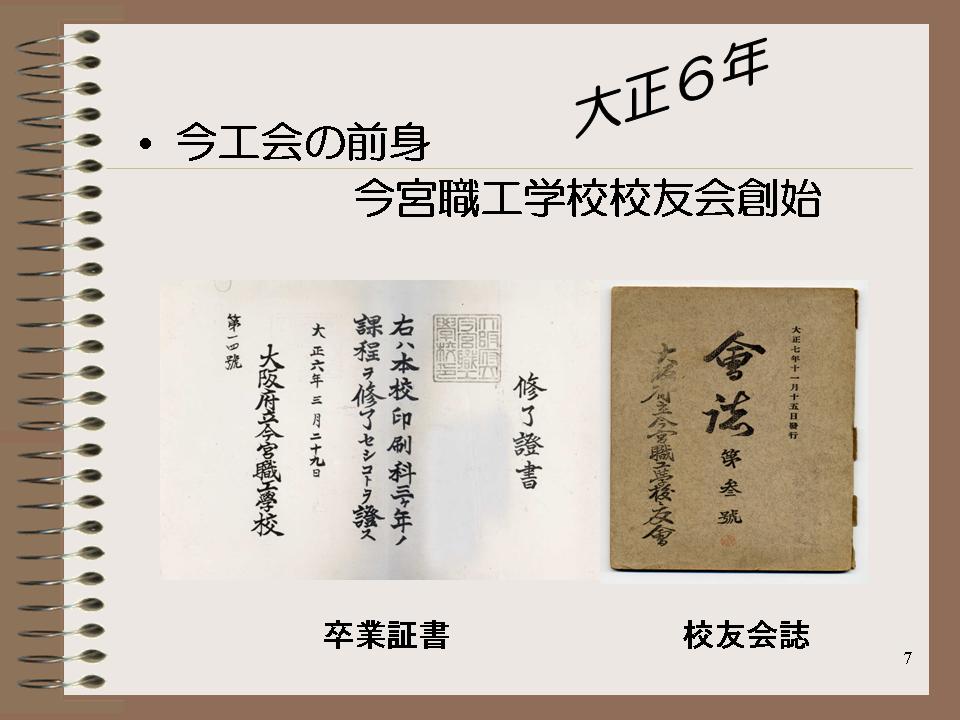 大正6年
• 今工会の前身
今宮職工学校校友会創始
修了證書
右ハ本校印刷科三ヶ年ノ
課程ヲ修了セシコトヲ證ス
大正六年三月二十九日
大阪府立今宮職工學校
第一四號
大正七年十一月十五日發行
會誌
第叁號
大阪府立今宮職工學校々友會
卒業証書
校友会誌
7